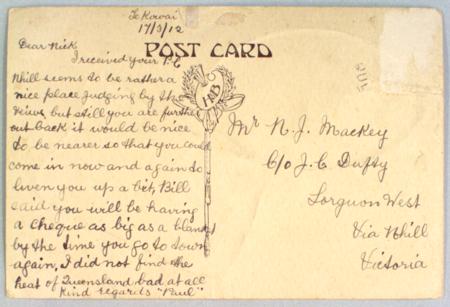 Te Kowai
17/3/12
Dear Nick
I received your P.C
Nhill seems to be rather a
nice place judging by the
views, but still you are further
out back it would be nice
to be nearer so that you could
come in now and again to
liven you up a bit, Bill
said you will be having
a cheque as big as a blanket
by the time you go to town
again, I did not find the
heat of Queensland bad at all
Kind regards "Paul"
POST CARD
HB
Mr N. J. Mackey
C/o J. C Dufty
Lorquon West
Via Nhill
Victoria